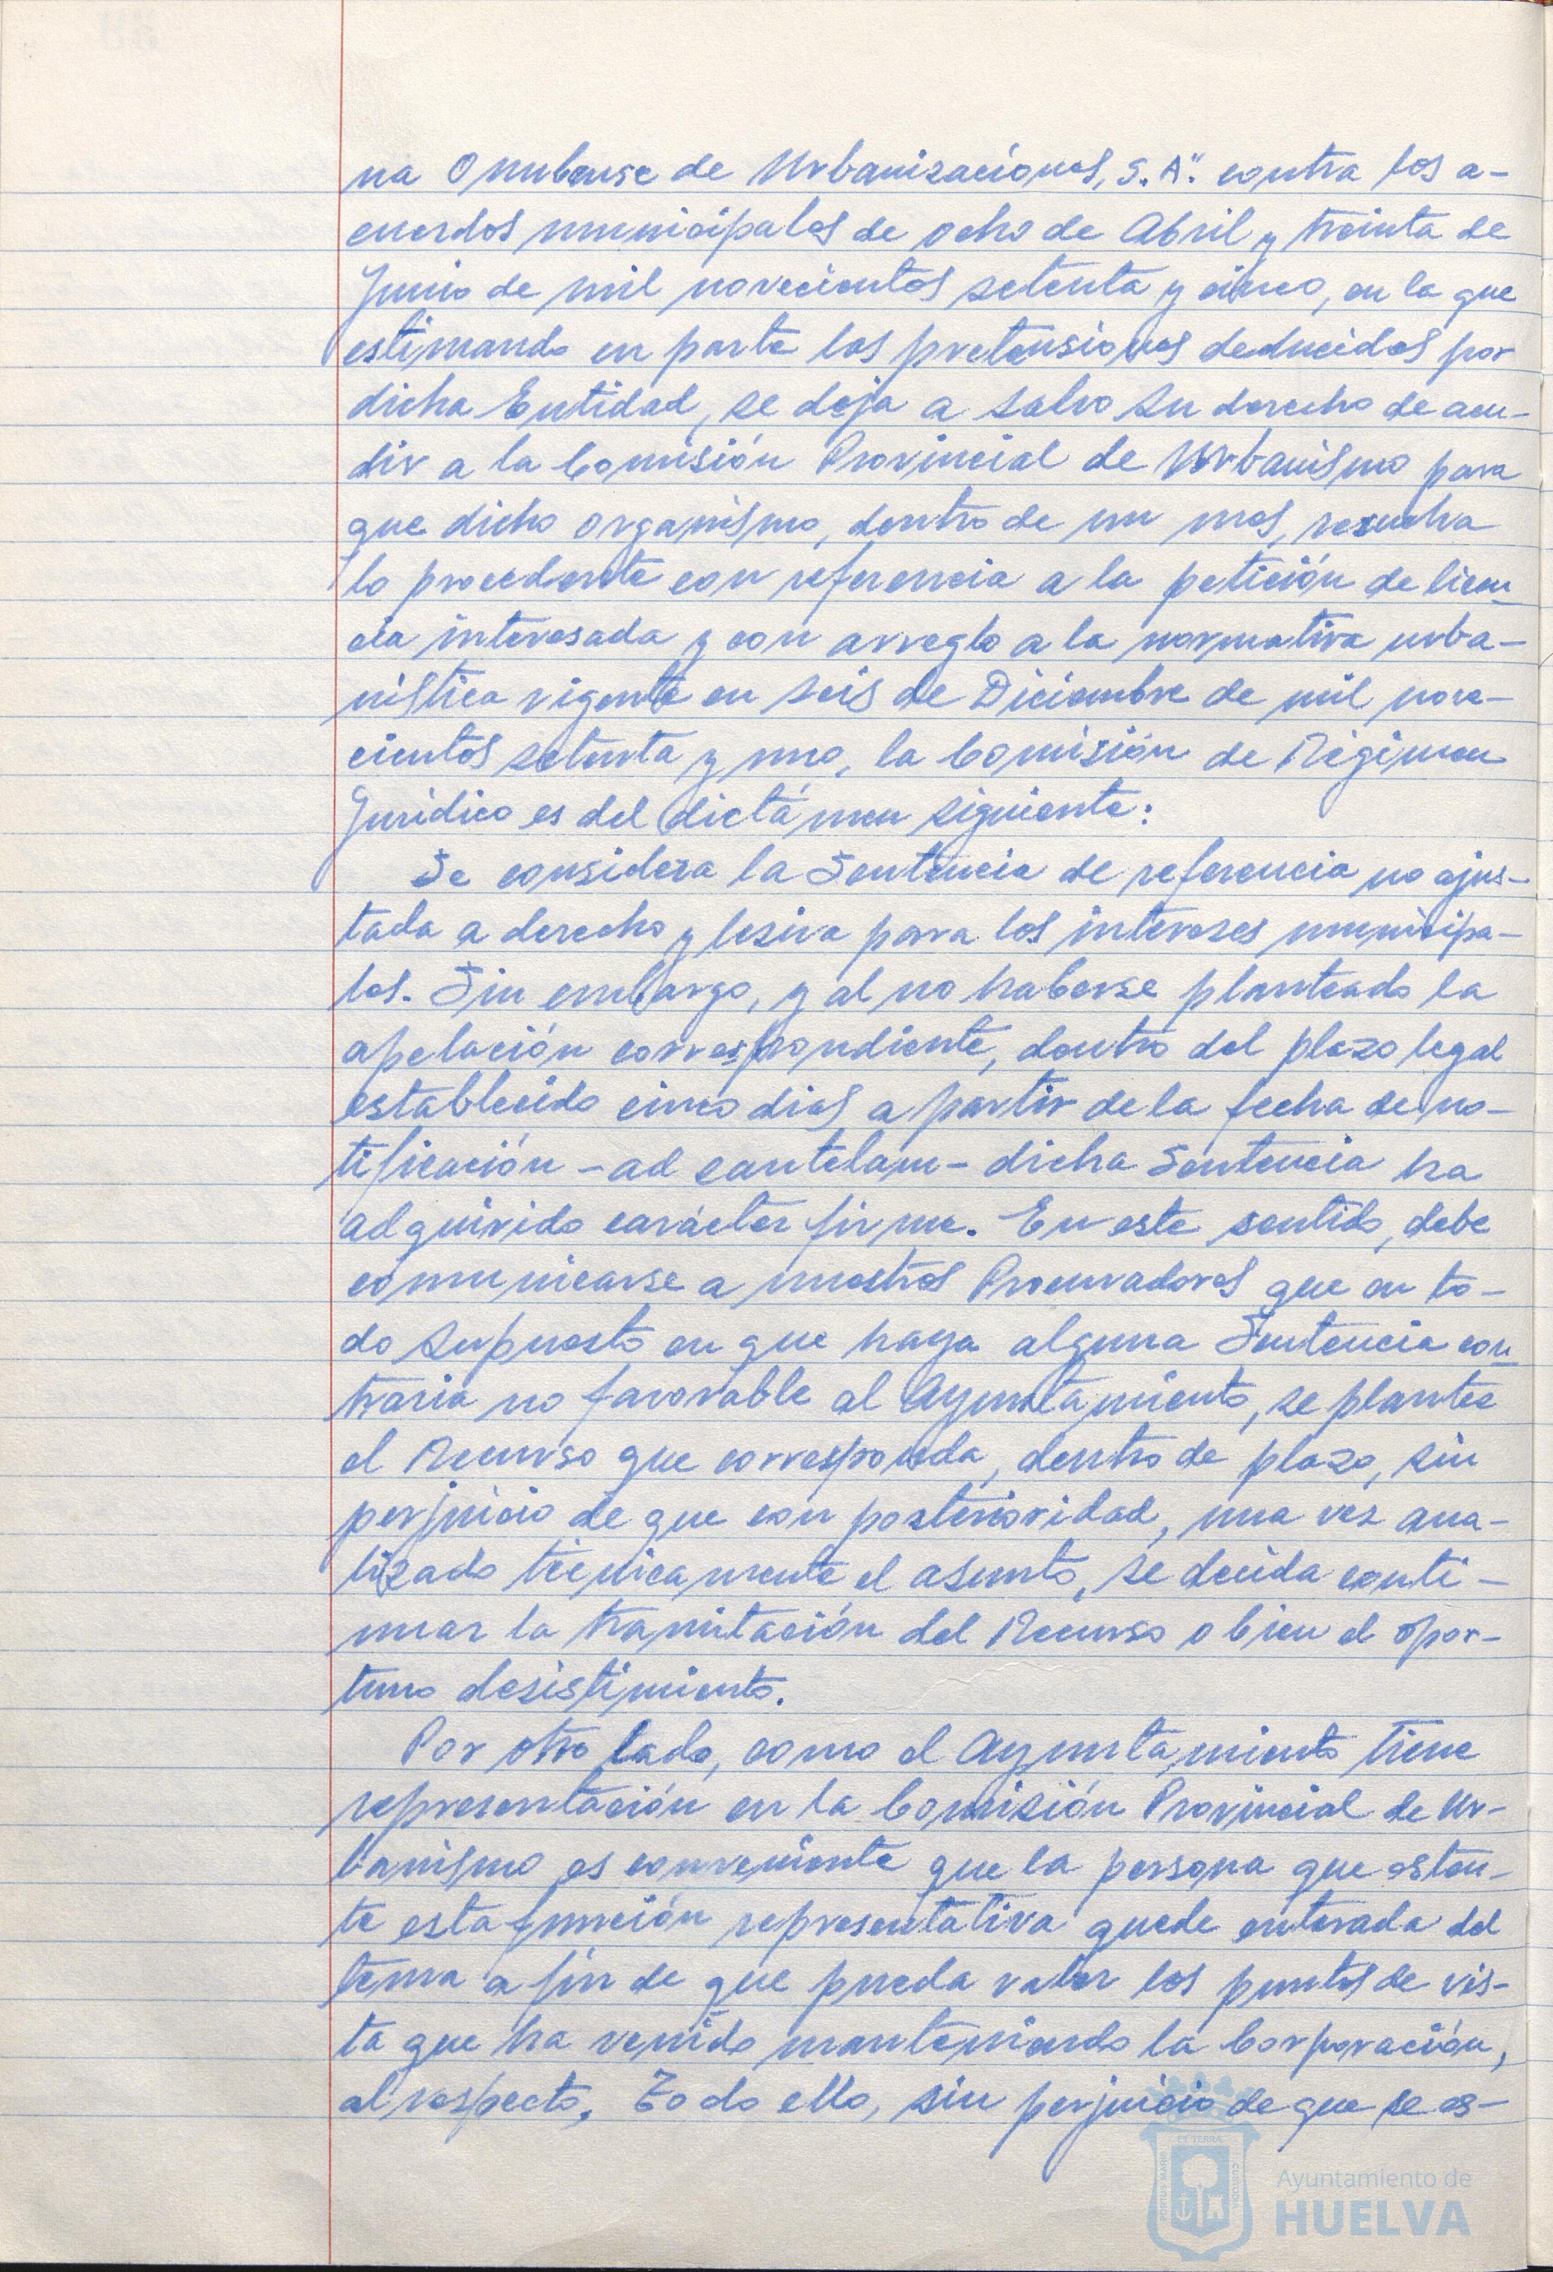 na Onubense de Urbanizaciones, S.A". contra los a-
cuerdos municipales de ocho de Abril y treinta de
Junio de mil novecientos setenta y cinco, en la que
estimando en parte las pretensiones deducidas por
dicha Entidad, se deja a salvo su derecho de acu-
dir a la Comisión Provincial de Urbanismo para
que dicho organismo, dentro de un mes, resuelva
lo procedente con referencia a la petición de licen-
cia interesada y con arreglo a la normativa urba-
nística vigente en seis de Diciembre de mil nove-
cientos setenta y uno, la Comisión de Régimen
Jurídico es del dictámen siguiente:
Se considera la Sentencia de referencia no ajus-
tada a derecho y lesiva para los intereses municipa-
les. Sin embargo, y al no haberse planteado la
apelación correspondiente, dentro del plazo legal
establecido cinco dias a partir de la fecha de no-
tificación -ad cautelam- dicha Sentencia ha
adquirido carácter firme. En este sentido, debe
comunicarse a nuestros Procuradores que en to-
do supuesto en que haya alguna Sentencia con
traria no favorable al Ayuntamiento, se plantee
el Recurso que corresponda, dentro de plazo, sin
perjuicio de que con posterioridad, una vez ana-
lizado técnicamente el asunto, se decida conti-
nuar la tramitación del Recurso o bien el opor-
tuno desistimiento.
Por otro lado, como el Ayuntamiento tiene
representación en la Comisión Provincial de Ur-
banismo es conveniente que la persona que osten-
te esta función representativa quede enterada del
tema a fin de que pueda valer los puntos de vis-
ta que ha venido manteniendo la Corporación,
al respecto. Todo ello, sin perjuicio de que se es-
Ayuntamiento de
HUELVA